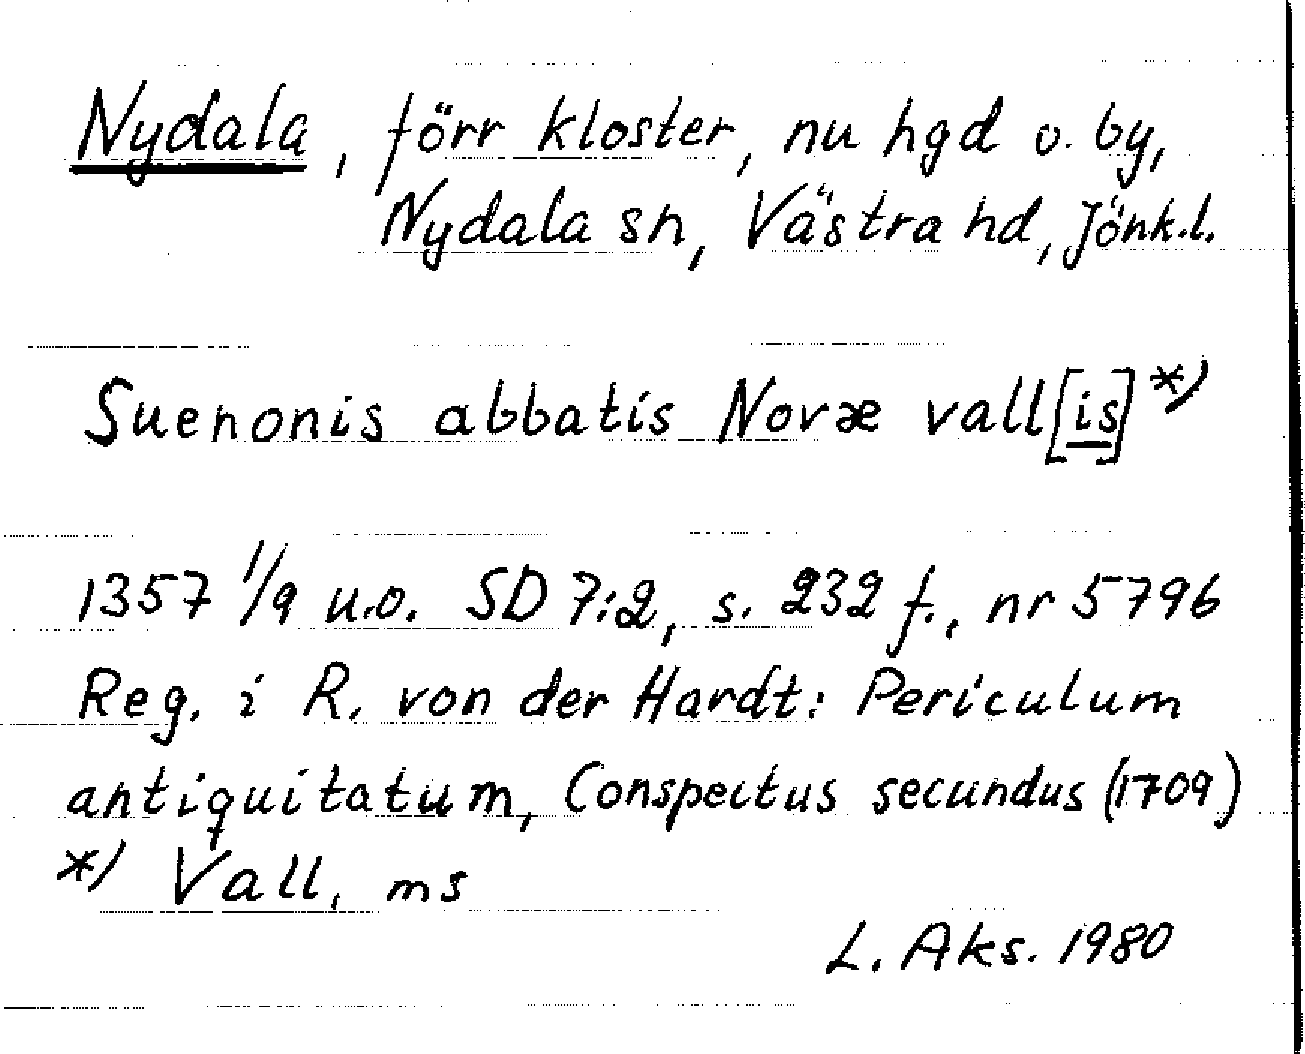 Nydala, förr kloster, nu hgd o. by,
Nydala sn, Västra hd, Jönk.l.
Suenonis abbatis Novæ vall[is]*)
1357 1/9 u.o. SD 7:2, s. 232 f., nr 5796
Reg. i R. von der Hardt: Periculum
antiquitatum, Conspectus secundus (1709)
*) Vall, ms
L. Aks. 1980